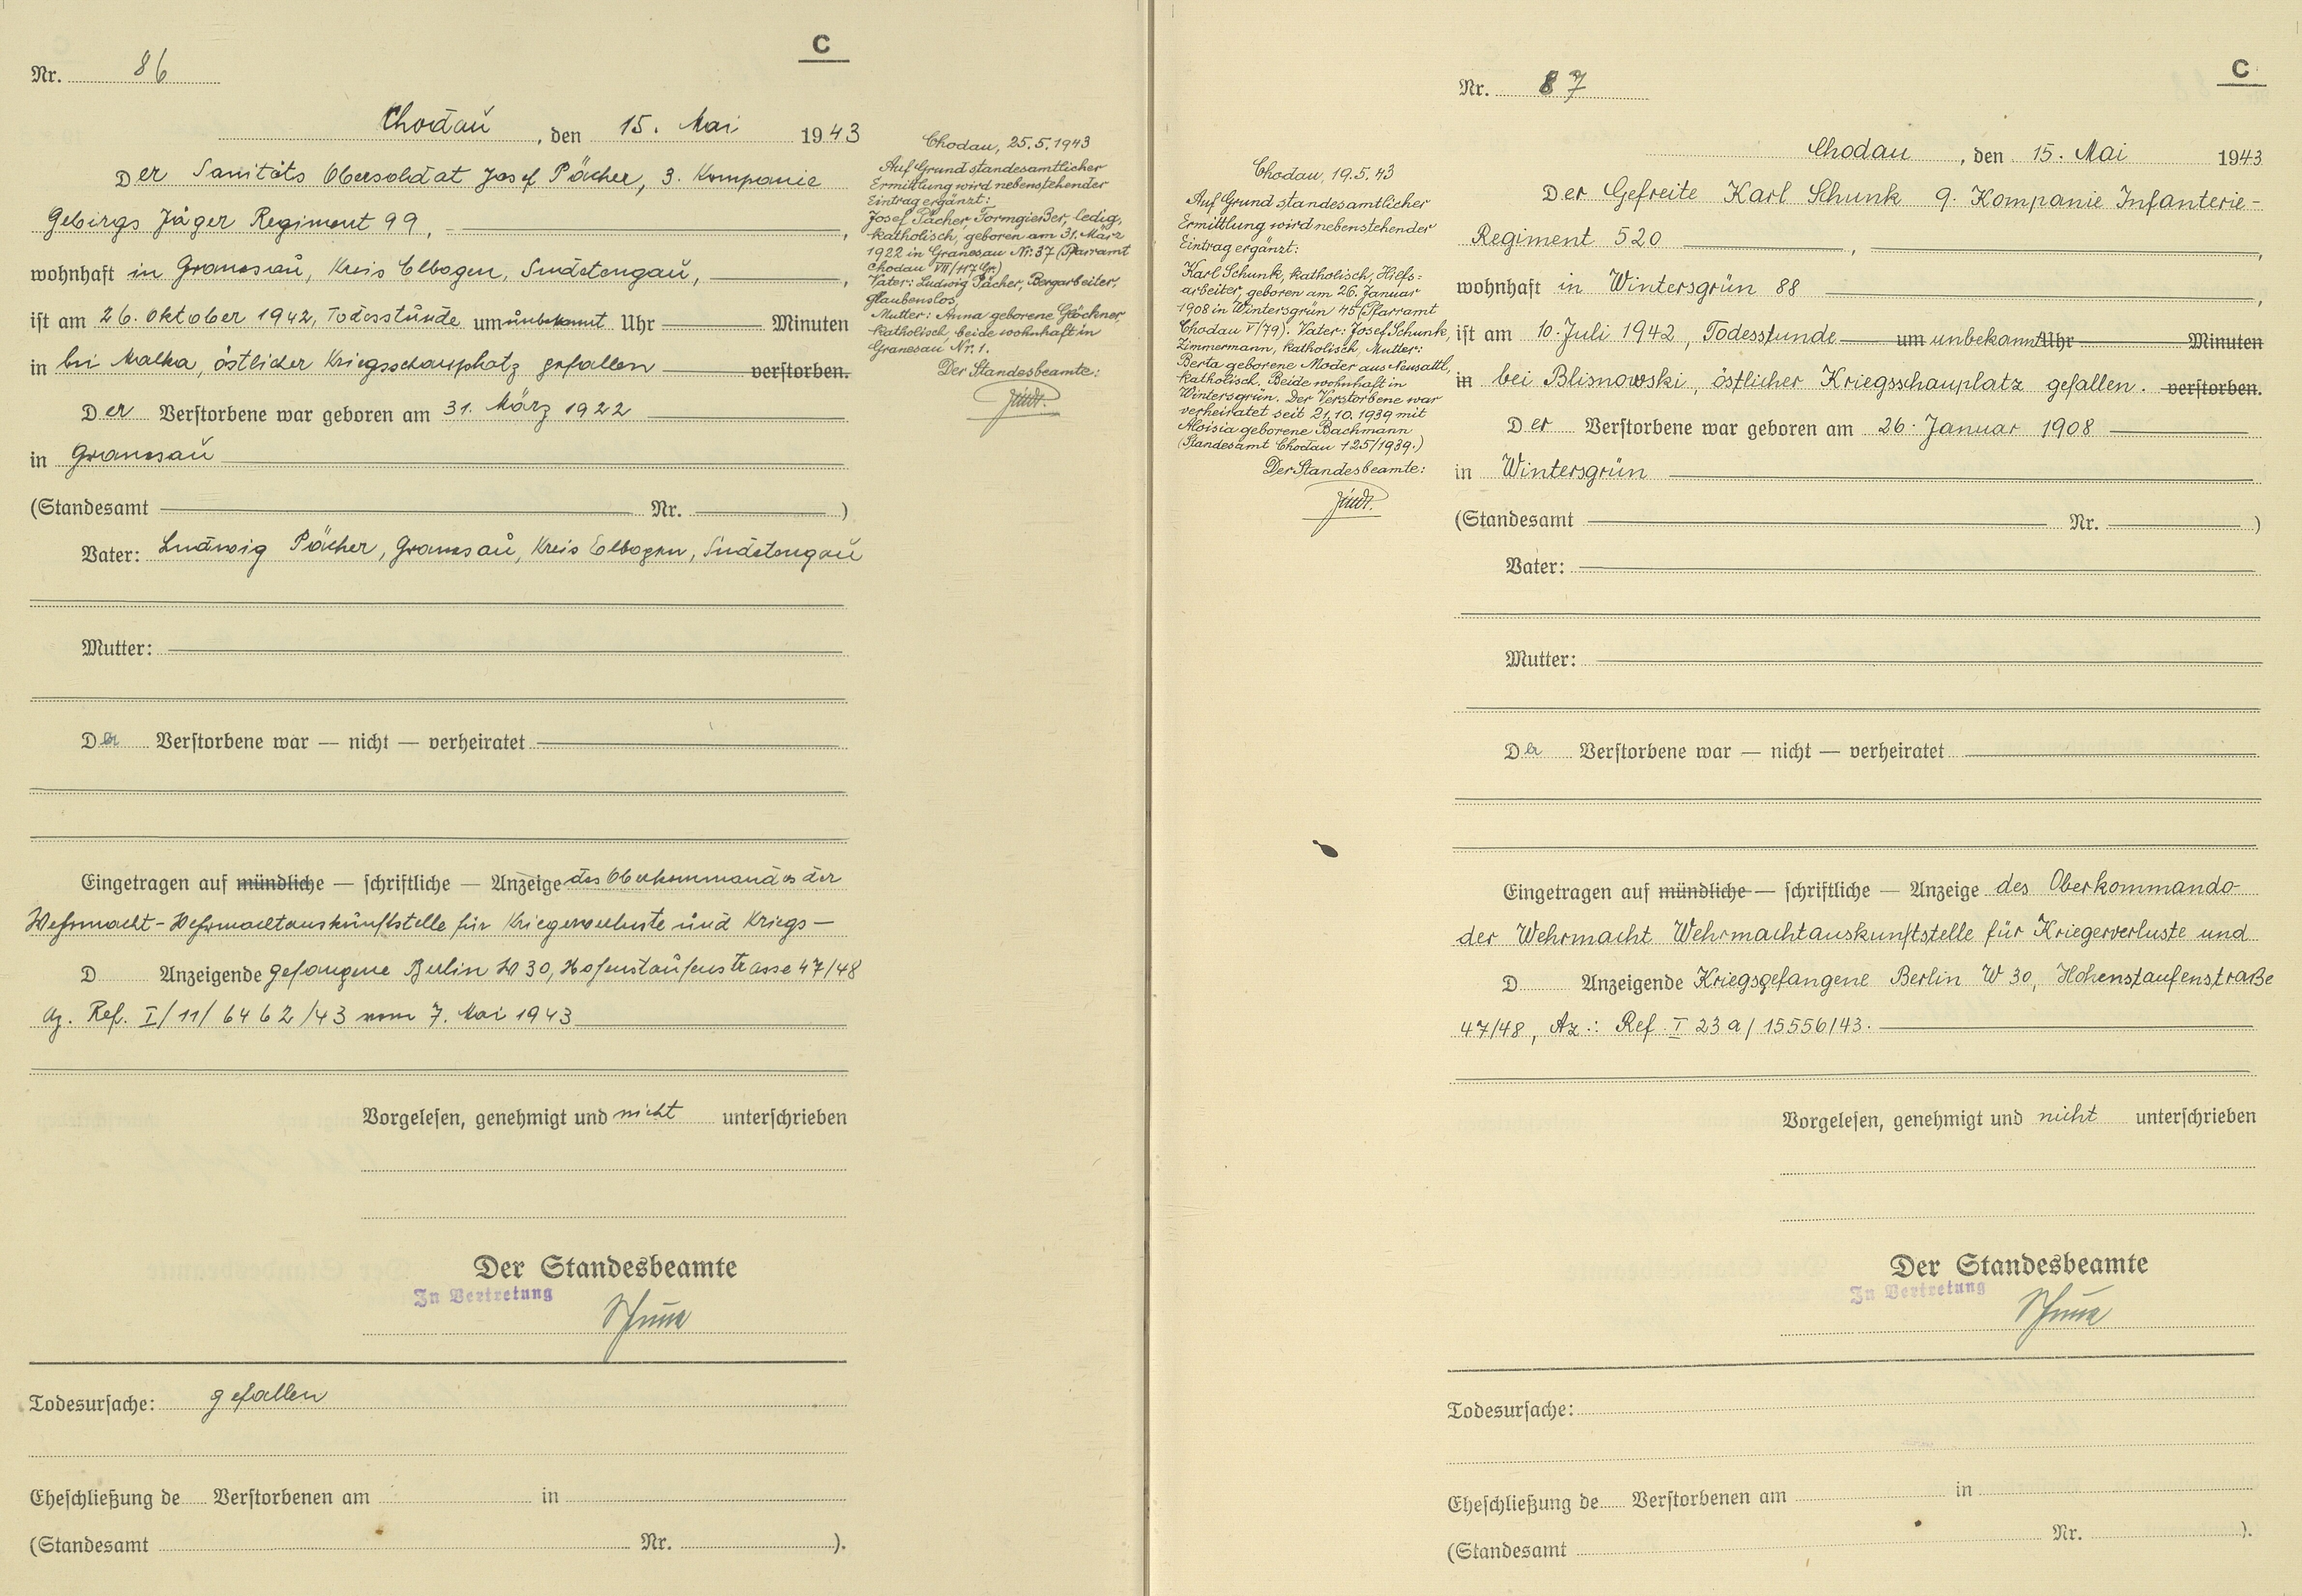 C
Nr. 86
Chodau, den 15. Mai 1943
Der Sanitäts Obersoldat Josef Pächer, 3. Kompanie
Gebirgs Jäger Regiment 99,
wohnhaft in Granesau, Kreis Elbogen, Sudetengau,
ist am 26. Oktober 1942, Todesstunde um unbekannt Uhr Minuten
in bei Malka, östlicher Kriegsschauplatz gefallen verstorben.
Der Verstorbene war geboren am 31. März 1922
in Granesau
(Standesamt Nr. )
Vater: Ludwig Pächer, Granesau, Kreis Elbogen, Sudetengau
Mutter:
Der Verstorbene war — nicht — verheiratet
Eingetragen auf mündliche — schriftliche — Anzeige des Oberkommandos der
Wehrmacht-Wehrmachtauskunftstelle für Kriegerverluste und Kriegs-
D Anzeigende gefangene Berlin W 30, Hohenstaufenstrasse 47/48
Az. Ref. I/11/6462/43 vom 7. Mai 1943
Vorgelesen, genehmigt und nicht unterschrieben
Der Standesbeamte
In Vertretung
Todesursache: gefallen
Eheschließung de Verstorbenen am in
(Standesamt Nr. ).
Chodau, 25.5.1943
Auf Grund standesamtlicher
Ermittlung wird nebenstehender
Eintrag ergänzt:
Josef Pächer, Formgießer, ledig,
katholisch, geboren am 31. März
1922 in Granesau Nr. 37 (Pfarramt
Chodau VII/117 Gr.)
Vater: Ludwig Pächer, Bergarbeiter,
glaubenslos,
Mutter: Anna geborene Glöckner,
katholisch, beide wohnhaft in
Granesau Nr. 1.
Der Standesbeamte:
C
Nr. 87
Chodau, den 15. Mai 1943
Der Gefreite Karl Schunk 9. Kompanie Infanterie-
Regiment 520 , ,
wohnhaft in Wintersgrün 88 ,
ist am 10. Juli 1942, Todesstunde um unbekannt Uhr Minuten
in bei Blisnowski, östlicher Kriegsschauplatz gefallen. verstorben.
Der Verstorbene war geboren am 26. Januar 1908
in Wintersgrün
(Standesamt Nr. )
Vater:
Mutter:
Der Verstorbene war — nicht — verheiratet
Eingetragen auf mündliche — schriftliche — Anzeige des Oberkommando-
der Wehrmacht Wehrmachtauskunftstelle für Kriegerverluste und
D Anzeigende Kriegsgefangene Berlin W 30, Hohenstaufenstraße
47/48, Az.: Ref. I 23 a/15556/43.
Vorgelesen, genehmigt und nicht unterschrieben
Der Standesbeamte
In Vertretung
Todesursache:
Eheschließung de Verstorbenen am in
(Standesamt Nr. ).
Chodau, 19.5.43
Auf Grund standesamtlicher
Ermittlung wird nebenstehender
Eintrag ergänzt:
Karl Schunk, katholisch, Hilfs=
arbeiter, geboren am 26. Januar
1908 in Wintersgrün 45 (Pfarramt
Chodau V/79). Vater: Josef Schunk,
Zimmermann, katholisch, Mutter:
Berta geborene Moder aus Neusattl,
katholisch. Beide wohnhaft in
Wintersgrün. Der Verstorbene war
verheiratet seit 21.10.1939 mit
Aloisia geborene Bachmann
(Standesamt Chodau 125/1939.)
Der Standesbeamte: